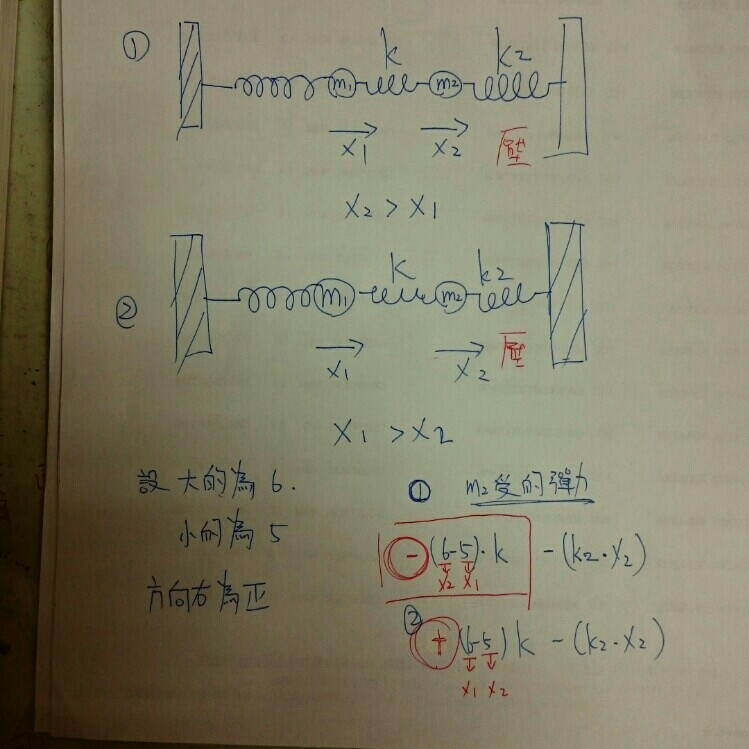 ① k k2
m1 m2
x1 x2 壓
x2 > x1
② k k2
m1 m2
x1 x2 壓
x1 > x2
設大的為6.
小的為5
方向右為正
① m2受的彈力
-(6-5)·k -(k2·x2)
x2 x1
② +(6-5)k -(k2·x2)
x1 x2